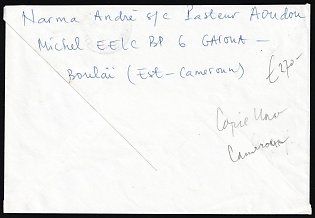 Narma André s/c Pasteur Aoudou
Michel EELC BP 6 GAROUA -
Boulaï (Est - Cameroun)
£270-
Cameroun